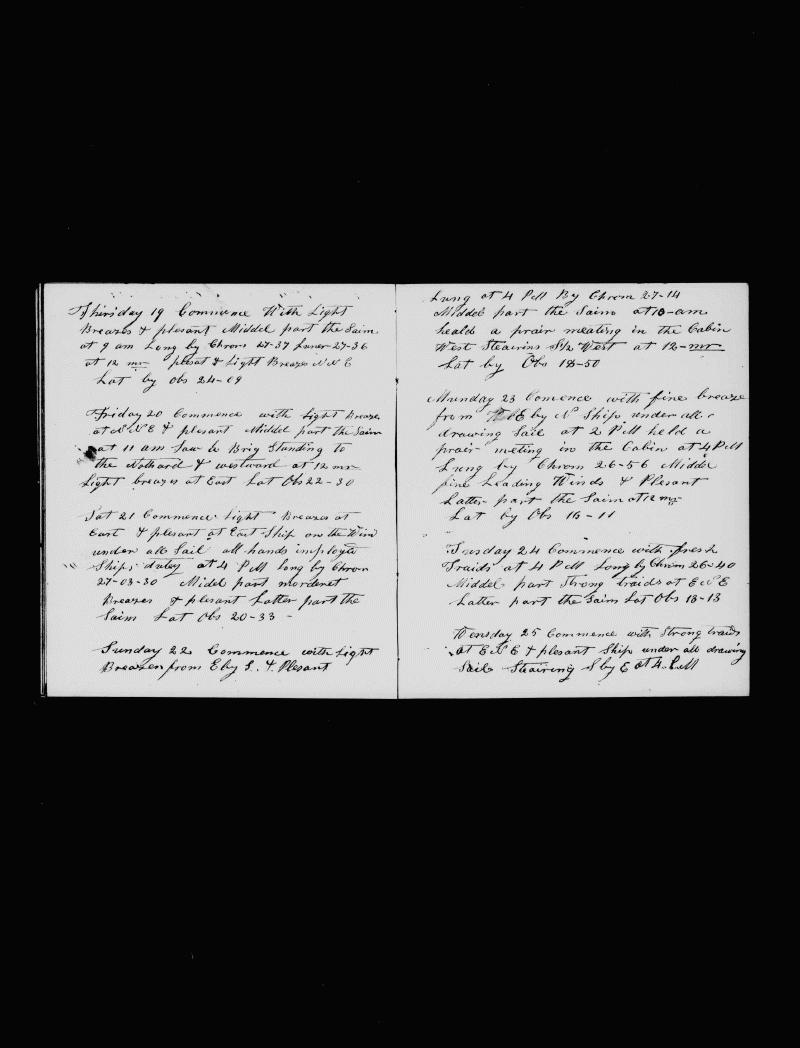 Thirsday 19 Commence With Light
Breazes & plesant Middel part the Saim
at 9 am Long by Chron 27-37 Luner 27-36
at 12 mr plesat & Light Breazes N N E
Lat by obs 24-09
Friday 20 Commence with Light Breazes
at N N E & plesant Middel part the Saim
at 11 am Saw a Brig Standing to
the Nothard & westward at 12 mr
Light breazes at East Lat Obs 22-30
Sat 21 Commence Light Breazes at
East & plesant at East Ship on the Wind
under all Sail all hands imployd
Ships dutey at 4 P M Long by Chron
27-03-30 Midel part morderet
Breazes & plesant Latter part the
Saim Lat Obs 20-33
Sunday 22 Commence with Light
Breazes from E by S. & Plesant
Lung at 4 P M By Chrom 27-14
Middel part the Saim at 10-am
heald a prair meating in the Cabin
West Stearins S 1/2 West at 12-mr
Lat by Obs 18-50
Munday 23 Comence with fine breaze
from by N Ship under all
drawing Sail at 2 P M held a
prair meting in the Cabin at 4 P M
Lung by Chrom 26-56 Middel
fine Leading Winds & Plesant
Latter part the Saim at 12 mr
Lat by Obs 16-11
Tusday 24 Commence with fresh
Traids at 4 P M Long by Chrom 26-40
Middel part Strong traids at E N E
Latter part the Saim Lat Obs 13-13
Wensday 25 Commence with Strong traids
at E N E & plesant Ship under all drawing
Sail Stearing S by E at 4 P.M